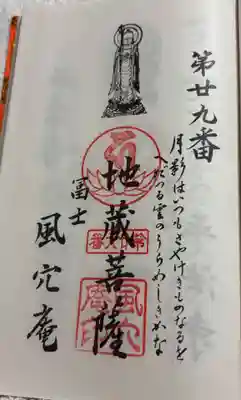 第廿九番
月影はいつもさやけきものなるを
へだつる雲のうらめしきかな
地蔵菩薩
冨士
風穴庵
風穴庵印